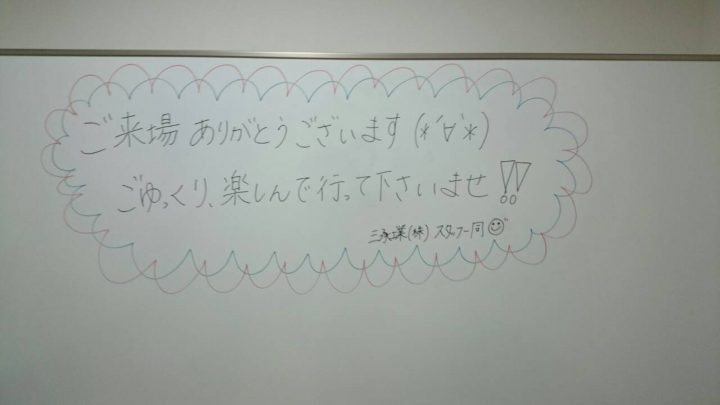 ご来場ありがとうございます(*´∀`*)
ごゆっくり、楽しんで行って下さいませ!!
三永業(株)スタッフ一同